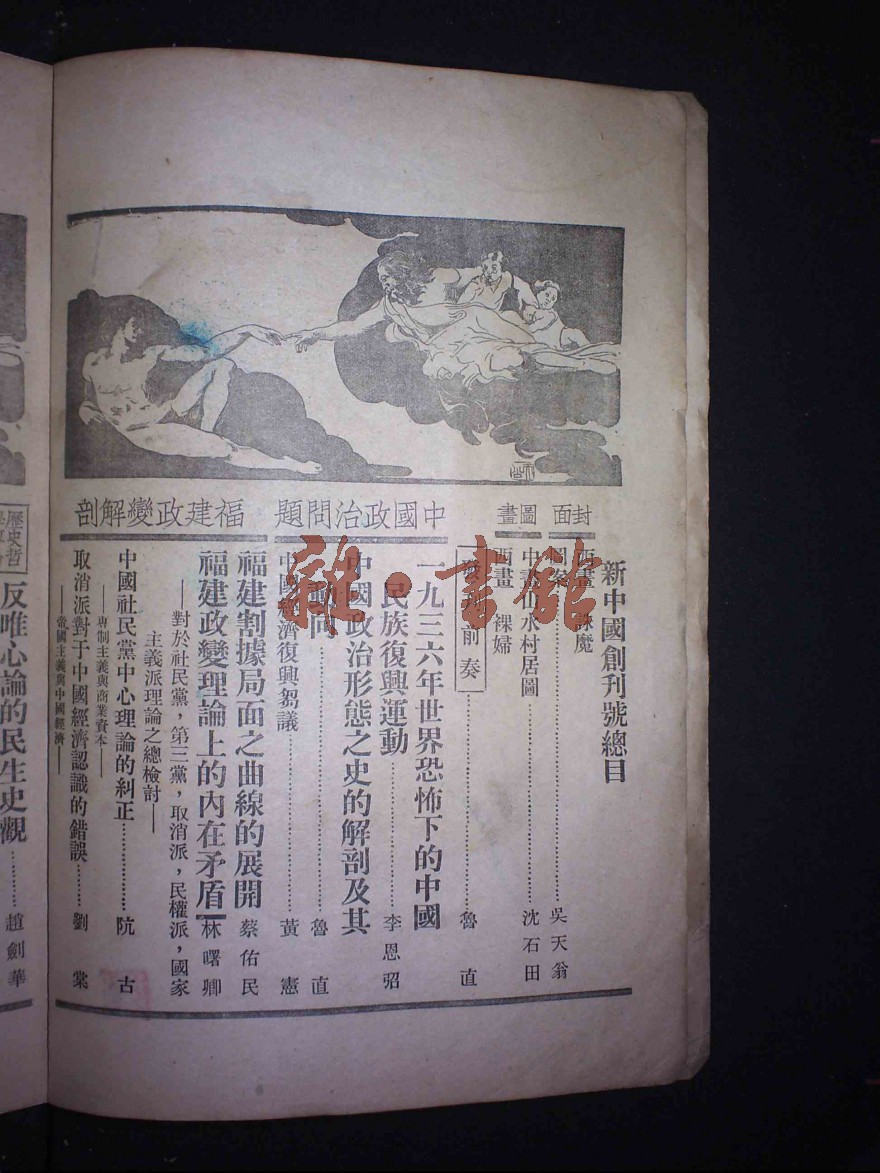 新中國創刊號總目
封面
西畫 誅魔
圖案……吳天翁
圖畫
中畫山水村居圖……沈石田
西畫 裸婦
發刊前奏……魯直
中國政治問題
一九三六年世界恐怖下的中國
民族復興運動……李恩弨
中國政治形態之史的解剖及其
動向……魯直
中國經濟復興芻議……黃憲
福建政變解剖
福建割據局面之曲線的展開 蔡佑民
福建政變理論上的內在矛盾 林曙卿
——對於社民黨，第三黨，取消派，民權派，國家
主義派理論之總檢討——
中國社民黨中心理論的糾正……阮古
——專制主義與商業資本——
取消派對于中國經濟認識的錯誤……劉棠
——帝國主義與中國經濟——
歷史哲
反唯心論的民生史觀……趙劍華
雜·書館